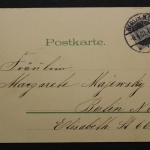 Postkarte.
Fräulein
Margareth Majewsky
Berlin N.
Elisabeth St 66